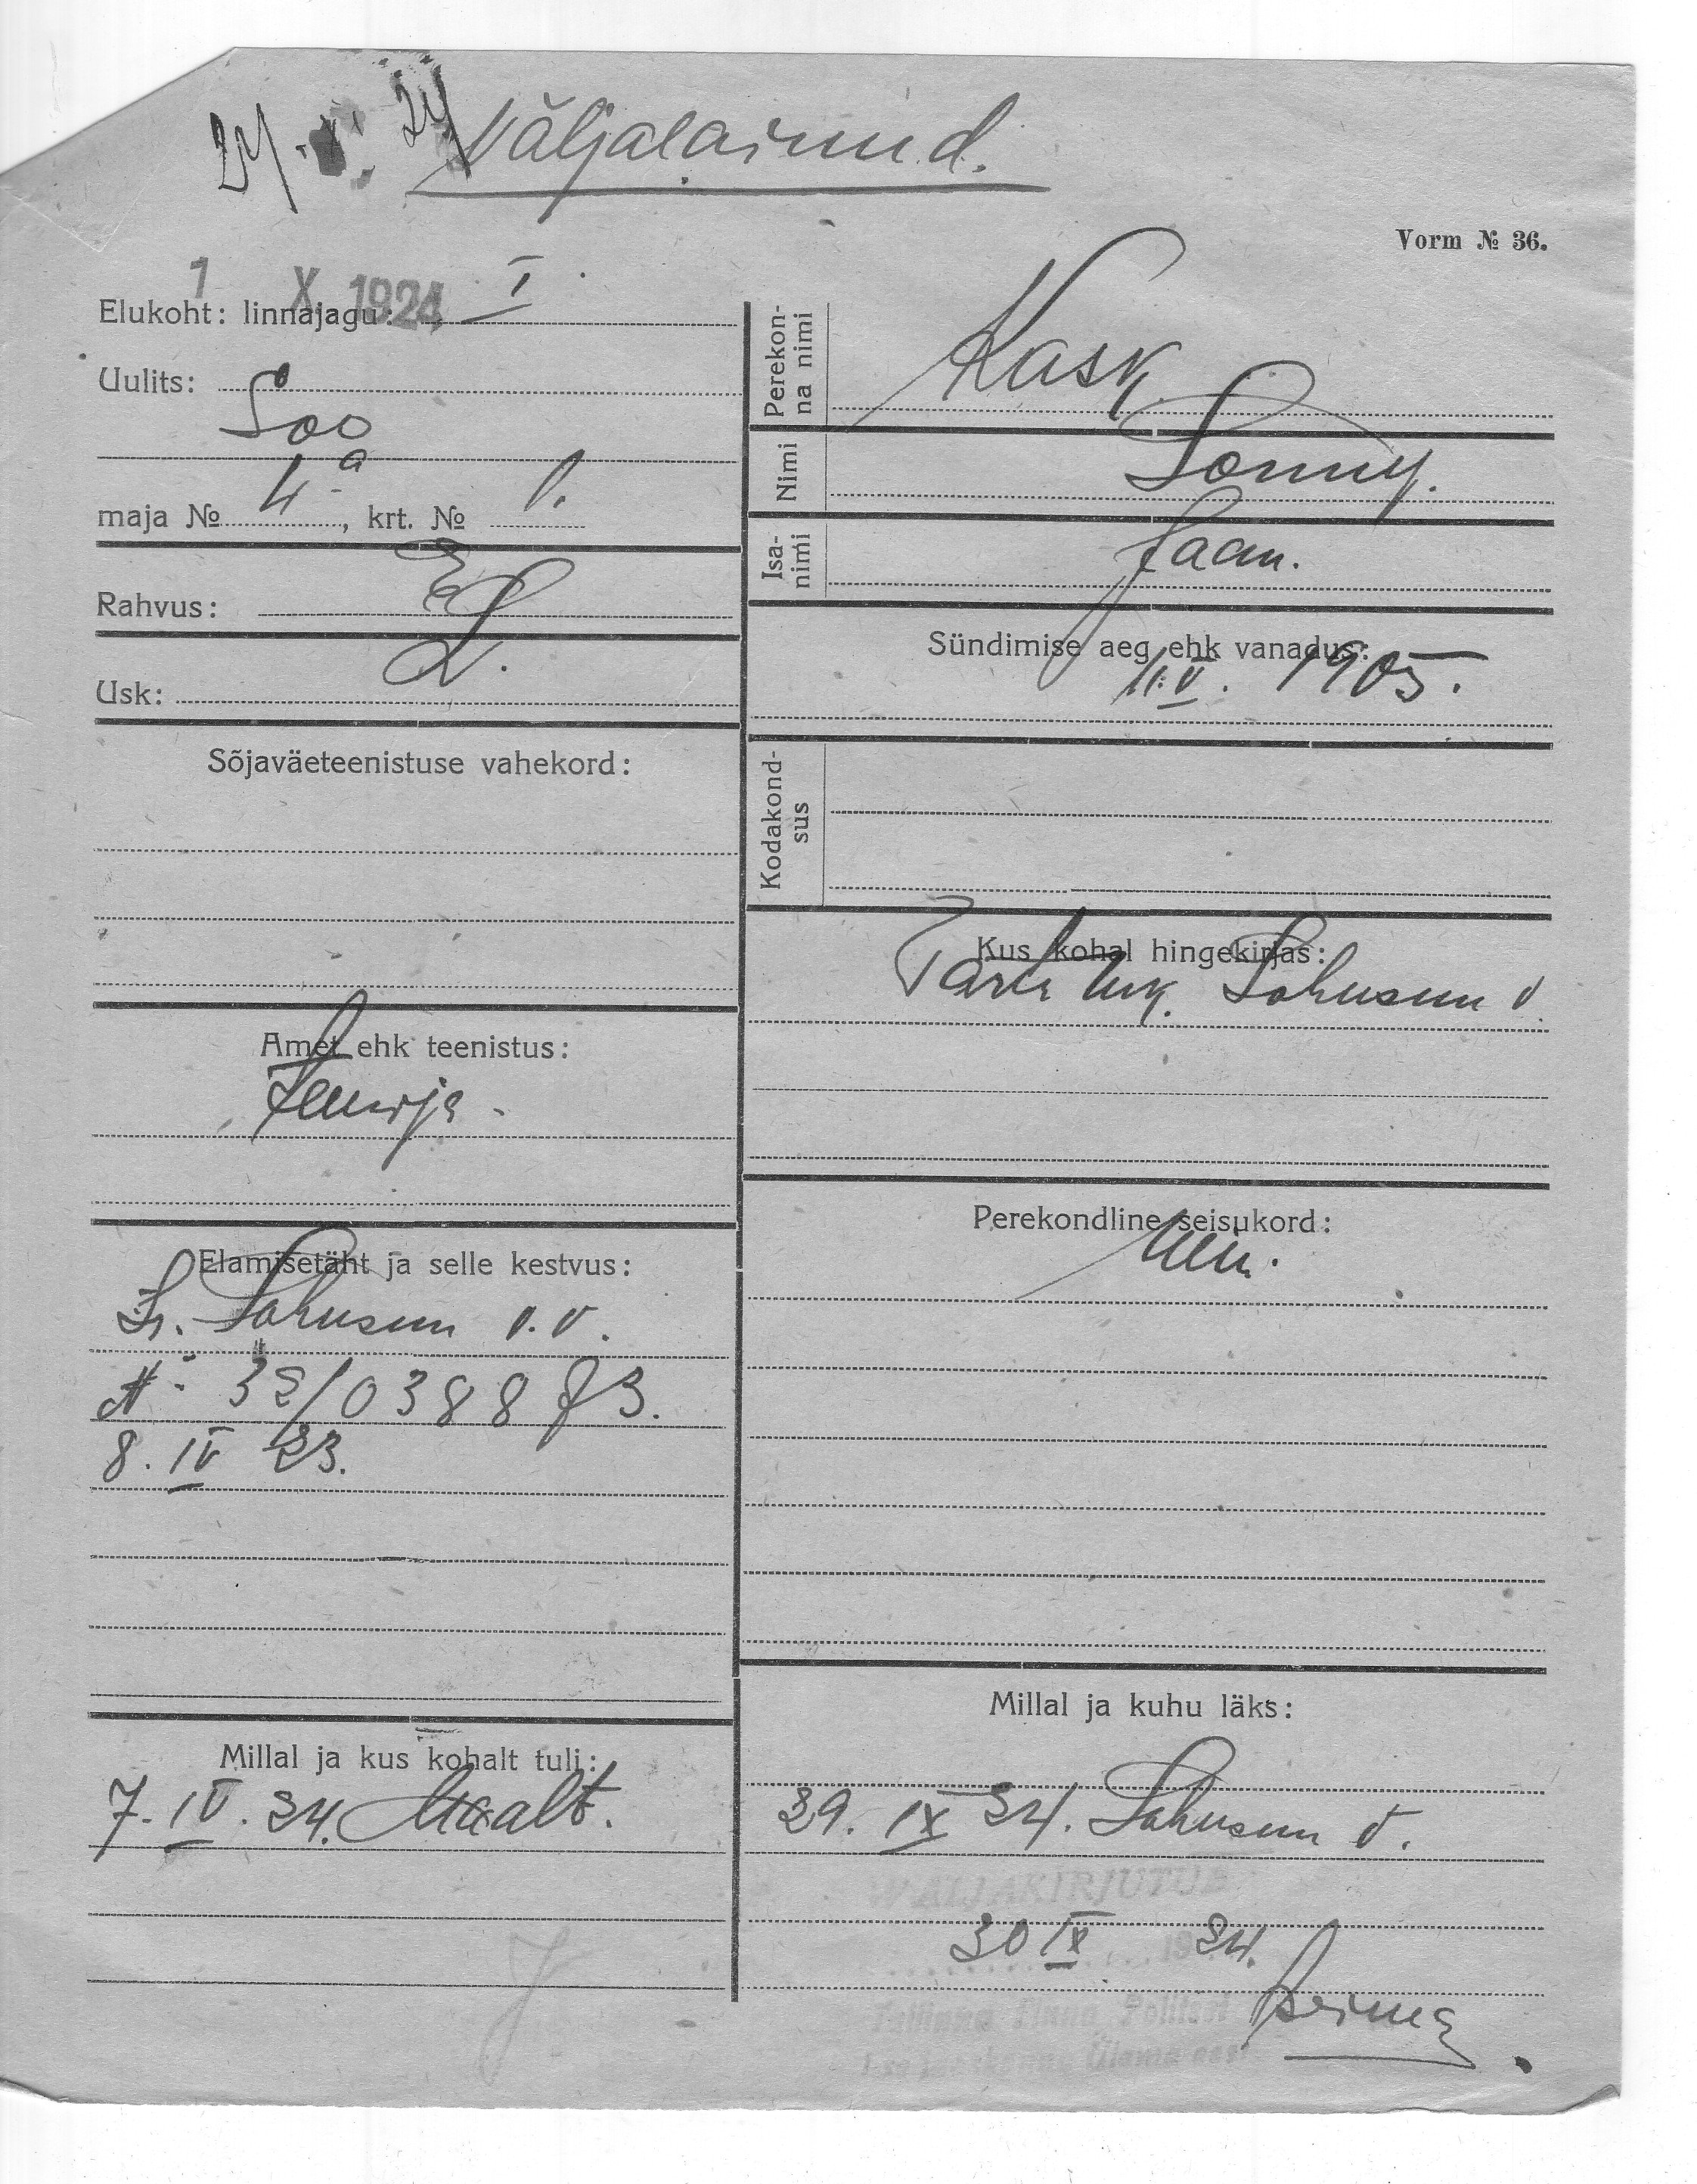 Väljaläinud.
Vorm № 36.
1 X 1924
Elukoht: linnajagu: I
Uulits:
Soo
maja № 4 a, krt. № 1.
Rahvus: E
Usk: L.
Sõjaväeteenistuse vahekord:
Amet ehk teenistus:
Teenija.
Elamisetäht ja selle kestvus:
Lohusuu v.v.
8. IV 23.
Millal ja kus kohalt tuli:
7. IV. 24. Maalt.
Perekonna nimi
Kask
Nimi
Lonny.
Isanimi
Jaan.
Sündimise aeg ehk vanadus:
11. V. 1905.
Kodakondsus
Kus kohal hingekirjas:
Tartu mk. Lohusuu v.
Perekondline seisukord:
Millal ja kuhu läks:
29. IX 24. Lohusuu v.
WÄLJAKIRJUTUD
30 IX 1924.
Tallinna Linna Politsei
I-se Jaoskonna Ülema eest